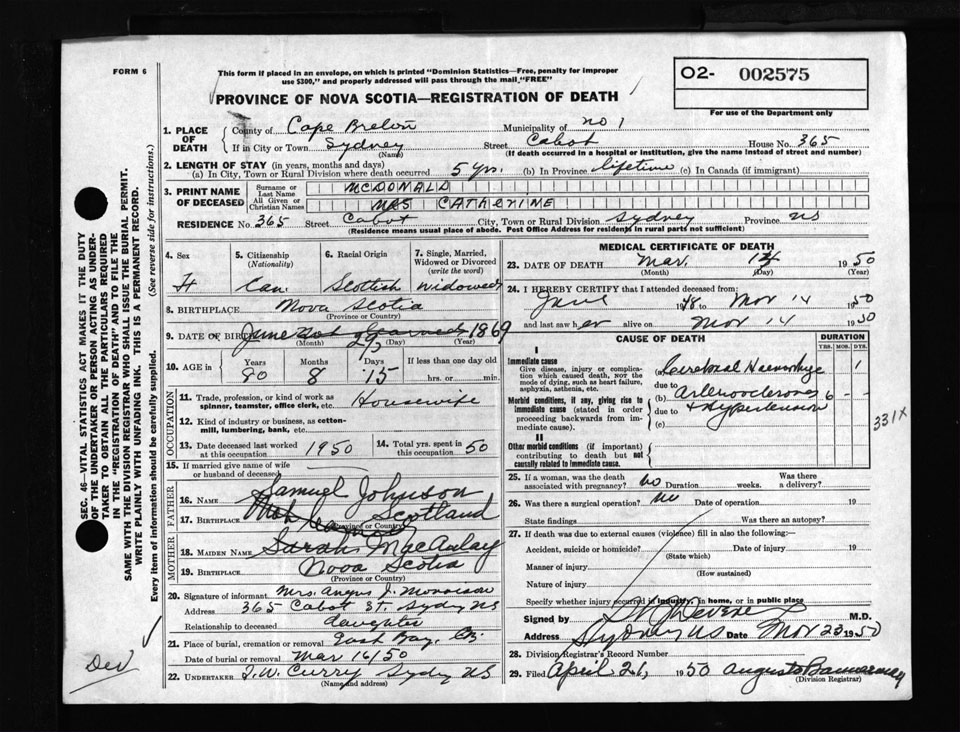 FORM 6
This form if placed in an envelope, on which is printed "Dominion Statistics—Free, penalty for improper
use $300," and properly addressed will pass through the mail "FREE"
O2- 002575
PROVINCE OF NOVA SCOTIA—REGISTRATION OF DEATH
For use of the Department only
1. PLACE OF DEATH
County of Cape Breton Municipality of no 1
If in City or Town Sydney Street Cabot House No. 365
(Name) (If death occurred in a hospital or institution, give the name instead of street and number)
2. LENGTH OF STAY (in years, months and days)
(a) In City, Town or Rural Division where death occurred 5 yrs. (b) In Province lifetime (c) In Canada (if immigrant)
3. PRINT NAME OF DECEASED
Surname or Last Name MCDONALD
All Given or Christian Names MRS CATHERINE
RESIDENCE No. 365 Street Cabot City, Town or Rural Division Sydney Province NS
(Residence means usual place of abode. Post Office Address for residents in rural parts not sufficient)
4. Sex F
5. Citizenship (Nationality) Can.
6. Racial Origin Scottish
7. Single, Married, Widowed or Divorced (write the word) widowed
8. BIRTHPLACE Nova Scotia
(Province or Country)
9. DATE OF BIRTH June 29, 1869
(Month) (Day) (Year)
10. AGE in Years 80 Months 8 Days 15 If less than one day old
hrs. or min.
OCCUPATION
11. Trade, profession, or kind of work as spinner, teamster, office clerk, etc. Housewife
12. Kind of industry or business, as cotten-mill, lumbering, bank, etc.
13. Date deceased last worked at this occupation 1950
14. Total yrs. spent in this occupation 50
15. If married give name of wife or husband of deceased
FATHER
16. NAME Samuel Johnson
17. BIRTHPLACE Scotland
(Province or Country)
MOTHER
18. MAIDEN NAME Sarah MacAulay
19. BIRTHPLACE Nova Scotia
(Province or Country)
20. Signature of informant Mrs. Angus J. Morrison
Address 365 Cabot St. Sydy NS
Relationship to deceased daughter
21. Place of burial, cremation or removal East Bay, CB.
Date of burial or removal Mar 16/50
22. UNDERTAKER T. W. Curry Sydy NS
(Name and address)
MEDICAL CERTIFICATE OF DEATH
23. DATE OF DEATH Mar. 14 1950
(Month) (Day) (Year)
24. I HEREBY CERTIFY that I attended deceased from:
June 1948 to Mar 14 1950
and last saw her alive on Mar 14 1950
CAUSE OF DEATH
DURATION
YRS. MOS. DYS.
I
Immediate cause
Give disease, injury or complication which caused death, NOT the mode of dying, such as heart failure, asphyxia, asthenia, etc.
(a) Cerebral Haemorrhage 1
due to
Morbid conditions, if any, giving rise to immediate cause (stated in order proceeding backwards from immediate cause).
(b) Arteriosclerosis 6 - -
due to + Hypertension
(c)
331X
II
Other morbid conditions (if important) contributing to death but not causally related to immediate cause.
25. If a woman, was the death associated with pregnancy? no Duration weeks. Was there a delivery?
26. Was there a surgical operation? no Date of operation 19
State findings Was there an autopsy?
27. If death was due to external causes (violence) fill in also the following:—
Accident, suicide or homicide? Date of injury 19
(State which)
Manner of injury
(How sustained)
Nature of injury
Specify whether injury occurred in industry, in home, or in public place
Signed by M.D.
Address Sydney NS Date Mar 23 1950
28. Division Registrar's Record Number
29. Filed April 26, 1950
(Division Registrar)
SEC. 46—VITAL STATISTICS ACT MAKES IT THE DUTY
OF THE UNDERTAKER OR PERSON ACTING AS UNDER-
TAKER TO OBTAIN ALL THE PARTICULARS REQUIRED
IN THE "REGISTRATION OF DEATH" AND TO FILE THE
SAME WITH THE DIVISION REGISTRAR WHO SHALL ISSUE THE BURIAL PERMIT.
WRITE PLAINLY WITH UNFADING INK. THIS IS A PERMANENT RECORD.
Every item of information should be carefully supplied. (See reverse side for instructions.)